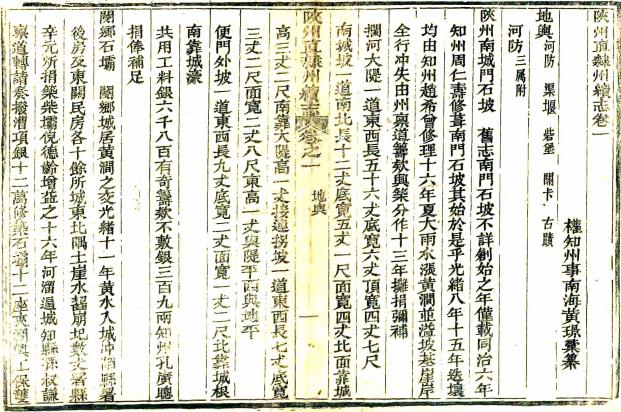 陝州直隸州續志卷一
權知州事南海黃璟纂
地輿 河防 渠堰 砦堡 關卡 古蹟
河防 三属附
陝州南城門石坡 舊志南門石坡不詳創始之年僅載同治六年
知州周仁壽修葺南門石坡其始於是乎光緒八年十五年迭壞
均由知州趙希曾修理十六年夏大雨水漲黃澗並溢坡基崖岸
全行冲失由州稟道籌欵興築分作十三年攤捐彌補
攔河大隄一道東西長五十六丈底寬六丈頂寬四丈七尺
南城坡一道南北長十二丈底寬五丈一尺面寬四丈北面靠城
陝州直隸州續志 卷之一 地輿 一
高三丈二尺南靠大隄高一丈接邊拐坡一道東西長七丈底寬
三丈二尺面寬二丈八尺東高一丈與隄平西與地平
便門外坡一道東西長九丈底寬二丈面寬一丈二尺北靠城根
南靠城濠
共用工料銀六千八百有奇籌欵不敷銀三百九兩知州孔廣聰
捐俸補足
閿鄉石壩 閿鄉城居黃澗之交光緒十一年黃水入城冲陷縣署
後房及東關民房各十餘所城東北隅土崖水齧崩圯數丈署縣
辛元所捐築柴壩倪德齡增益之十六年河溜逼城知縣孫叔謙
稟道轉請奏撥漕項銀十二萬修築石壩十二座